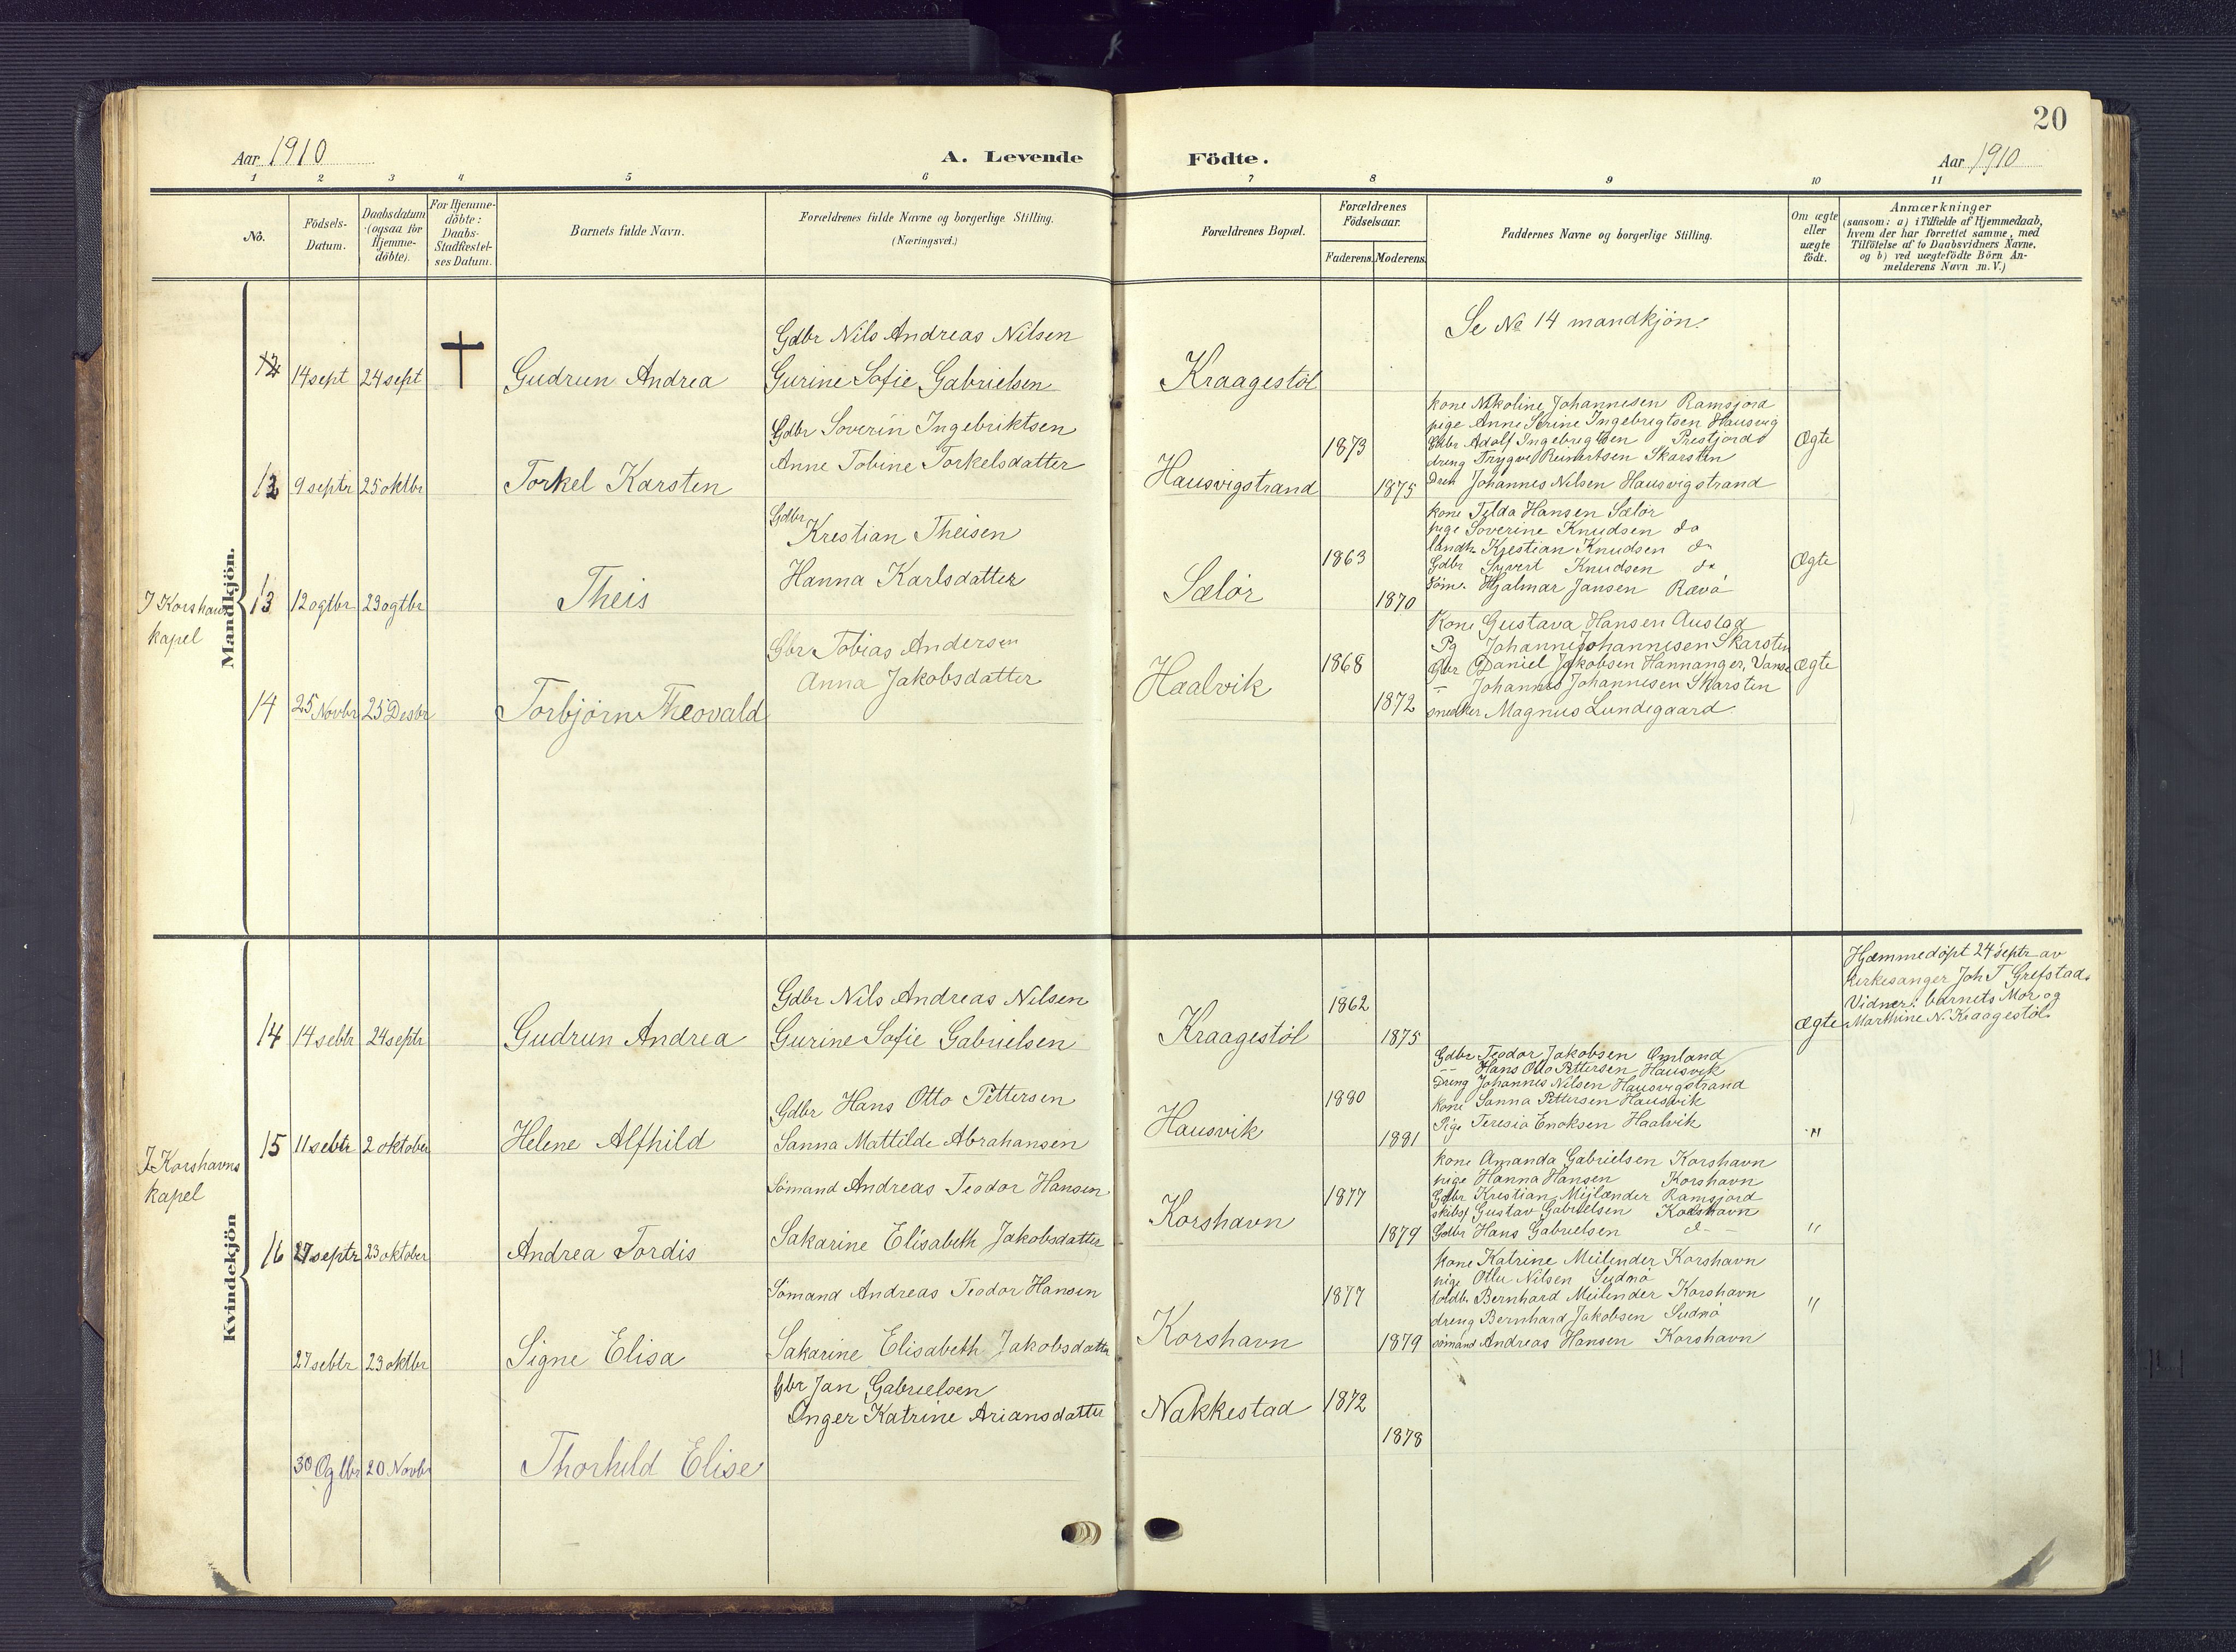 20
Aar 1910
A. Levende
Födte.
Aar 1910
1 2 3 4 5 6 7 8 9 10 11
No.
Födsels-
Datum.
Daabsdatum
(ogsaa for
Hjemme-
döbte).
For Hjemme-
döbte:
Daabs-
Stadfæstel-
ses Datum.
Barnets fulde Navn.
Forældrenes fulde Navne og borgerlige Stilling.
(Næringsvei.)
Forældrenes Bopæl.
Forældrenes
Födselsaar.
Faderens. Moderens.
Faddernes Navne og borgerlige Stilling.
Om ægte
eller
uægte
födt.
Anmærkninger
(saasom: a) i Tilfælde af Hjemmedaab,
hvem der har forrettet samme, med
Tilföielse af to Daabsvidners Navne,
og b) ved uægtefödte Börn An-
melderens Navn m.V.)
Mandkjön.
Gdbr Nils Andreas Nilsen
14 sept 24 sept Gudrun Andrea Gurine Sofie Gabrielsen Kraagestøl
Se No 14 mandkjøn.
Gdbr Soverin Ingebriktsen
Anne Tobine Torkelsdatter
12 9 septr 25 oktbr Torkel Karsten Hausvigstrand 1873 1875
kone Nikoline Johannesen Ramsjord
pige Anne Serine Ingebrigtsen Hausvig
Gdbr Adolf Ingebrigtsen Prestjord
dreng Trygve Reinertsen Skarsten
Johannes Nilsen Hausvigstrand
Ægte
I Korshavn
kapel
Gdbr
Krestian Theisen
Hanna Karlsdatter
13 12 ogtbr 23 ogtbr Theis Sælør 1863 1870
kone Tilda Hansen Sælør
pige Soverine Knudsen do
landh. Krestian Knudsen do
Gdbr Syvert Knudsen do
Søm. Hjalmar Jansen Rævø
Ægte
Gbr Tobias Andersen
Anna Jakobsdatter
14 25 Novbr 25 Desbr Torbjørn Theovald Haalvik 1868 1872
Kone Gustava Hansen Austad
Pg Johanne Johannesen Skarsten
Gbr Daniel Jakobsen Hannanger, Vanse
– Johannes Johannesen Skarsten
snedker Magnus Lundegaard
ægte
Kvindekjön
Gdbr Nils Andreas Nilsen
14 14 sebtr 24 septr Gudrun Andrea Gurine Sofie Gabrielsen Kraagestøl 1862 1875
ægte
Hjemmedøpt 24 septr av
kirkesanger Joh T Grefstad.
Vidner: barnets Mor og
Marthine N. Kraagestøl
Gdbr Hans Otto Pettersen
15 11 sebtr 2 oktober Helene Alfhild Sanna Mattilde Abrahansen Hausvik 1880 1881
Gdbr Teodor Jakobsen Omland
–– Hans Otto Pettersen Hausvik
Dreng Johannes Nilsen Hausvigstrand
Kone Sanna Pettersen Hausvik
Pige Teresia Enoksen Haalvik
"
I Korshavns
kapel
Sømand Andreas Teodor Hansen
Sakarine Elisabeth Jakobsdatter
16 27 septr 23 oktober Andrea Tordis Korshavn 1877 1879
kone Amanda Gabrielsen Korshavn
pige Hanna Hansen Korshavn
Gdbr Krestian Mejlænder Ramsjord
skibsf Gustav Gabrielsen Korshavn
Gdbr Hans Gabrielsen d –
"
Sømand Andreas Teodor Hansen
Sakarine Elisabeth Jakobsdatter
27 sebtr 23 oktbr Signe Elisa Korshavn 1877 1879
kone Katrine Meilender Korshavn
pige Nilsen Sudmø
toldb. Bernhard Meilender Korshavn
dreng Bernhard Jakobsen Sudmø
sømand Andreas Hansen Korshavn
"
Gbr Jan Gabrielsen
Inger Katrine Ariansdatter
30 Ogtbr 20 Novbr Thorhild Elise Nakkestad 1872 1878